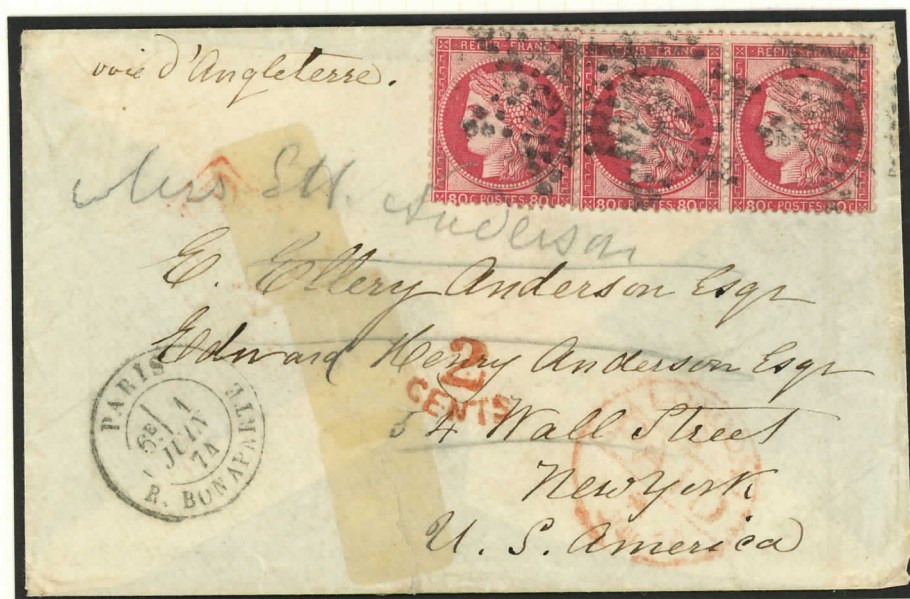 voie d'Angleterre.
REPUB. FRANC. REPUB. FRANC. REPUB. FRANC.
80C POSTES 80C 80C POSTES 80C 80C POSTES 80C
Miss E.H. Anderson
E. Ellery Anderson Esqr
Edward Henry Anderson Esqr
2
CENTS
54 Wall Street
New York
U. S. America
PARIS
1
JUIN
74
R. BONAPARTE